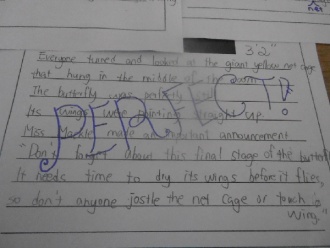 3'2"
Everyone turned and looked at the giant yellow net cage
that hung in the middle of the room
The butterfly was perfectly
Its wings were pointing straight up.
Miss Mackle made an important announcement
"Don't forget about this final stage of the butterfly
It needs time to dry its wings before it flies,
so don't anyone jostle the net cage or touch a
wing."
PERFECT!